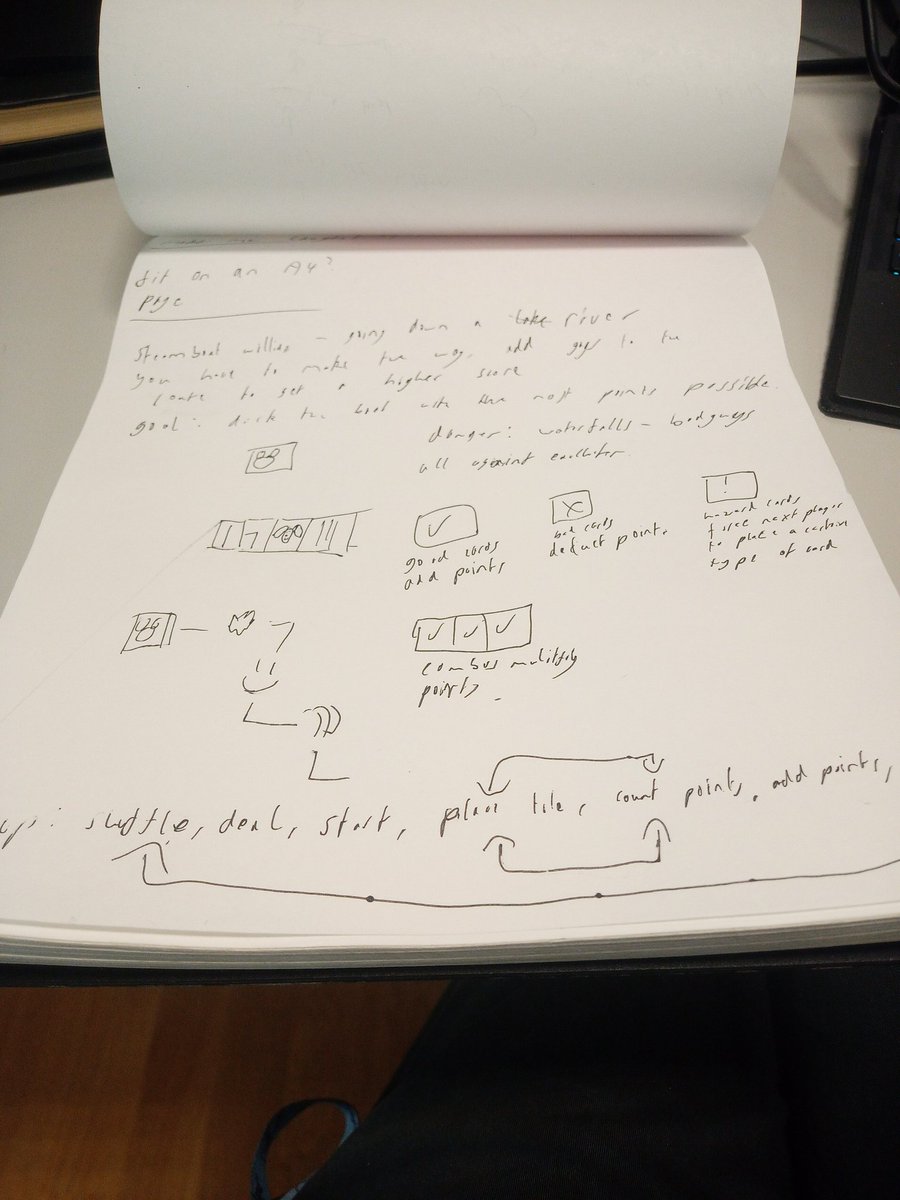 fit on an A4?
page
Steamboat willie - going down a lake river
you have to make the way, add guys to the
route to get a higher score
goal: dock the boat with the most points possible.
danger: waterfalls - badguys
all against eachother
✓
good cards
add points
X
bad cards
deduct points
!
hazard cards
force next player
to place a certain
type of card
✓ ✓ ✓
combos multiply
points.
shuffle, deal, start, place tile, count points, add points,